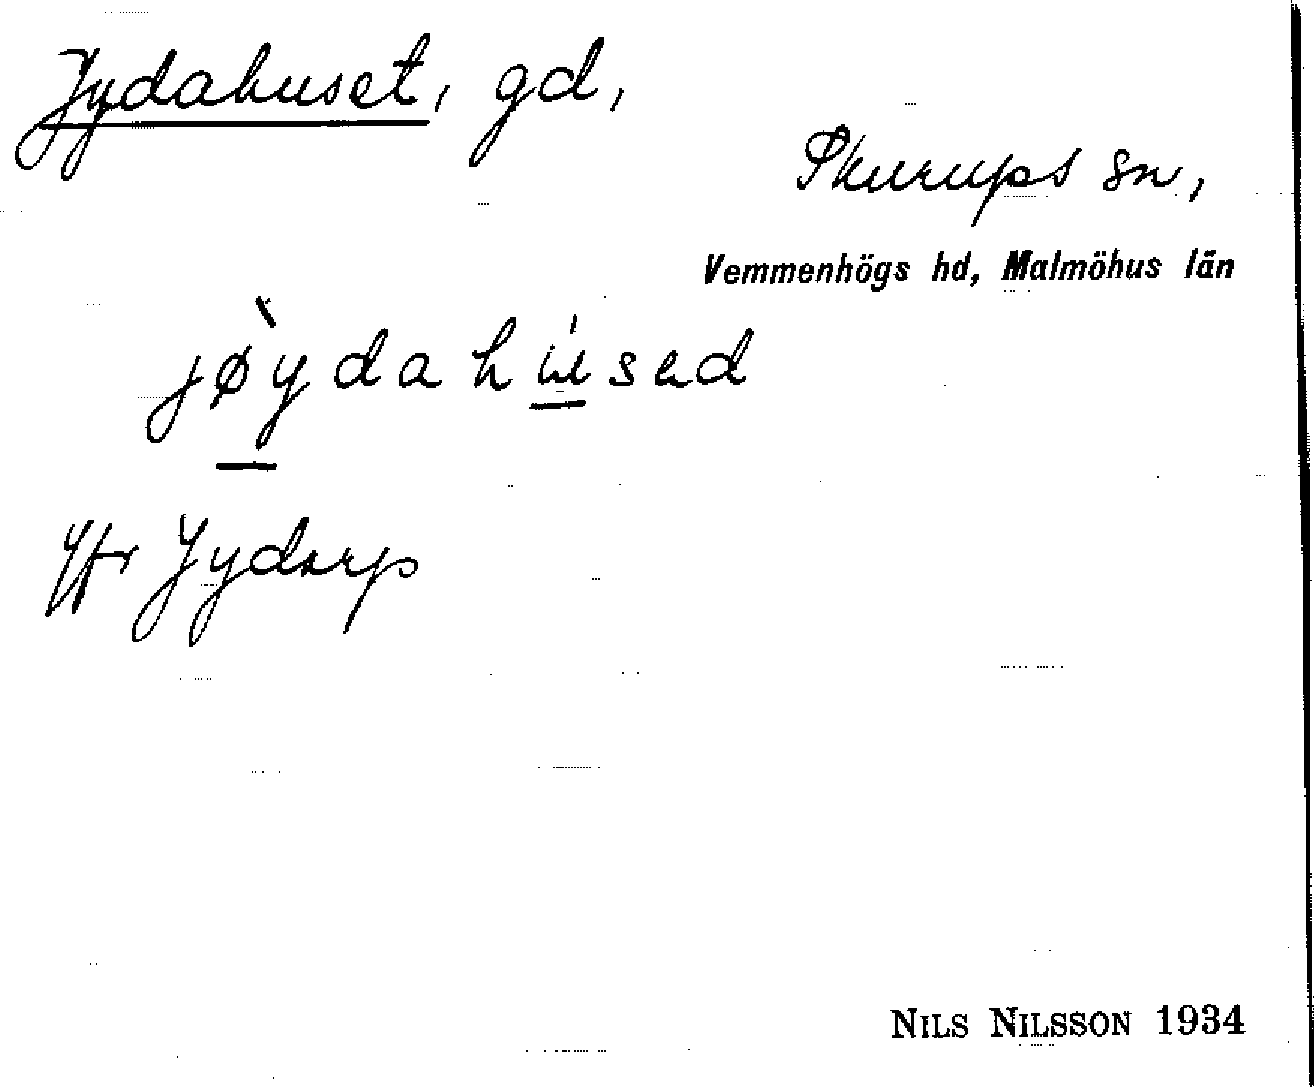 Jydahuset, gd,
Skurups sn,
Vemmenhögs hd, Malmöhus län
jø̀ydahúsəd
Jfr Jydorp
NILS NILSSON 1934